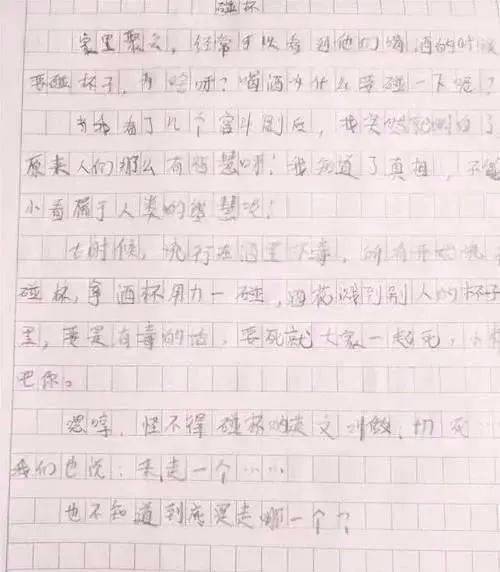 碰杯
家里聚会，经常可以看到他们喝酒的时候
要碰杯子，为啥呀？喝酒为什么要碰一下呢？
当我看了几个宫斗剧后，我突然明白了
原来人们那么有智慧呀！我知道了真相，不能
小看属于人类的智慧呢！
古时候，流行在酒里下毒，所有开始流
碰杯，拿酒杯用力一碰，酒花溅到别人的杯子
里，要是有毒的话，要死就大家一起死，小
吧你。
嗯哼，怪不得碰杯的英文叫做，切死
我们也说：来走一个……
也不知道到底要走哪一个？